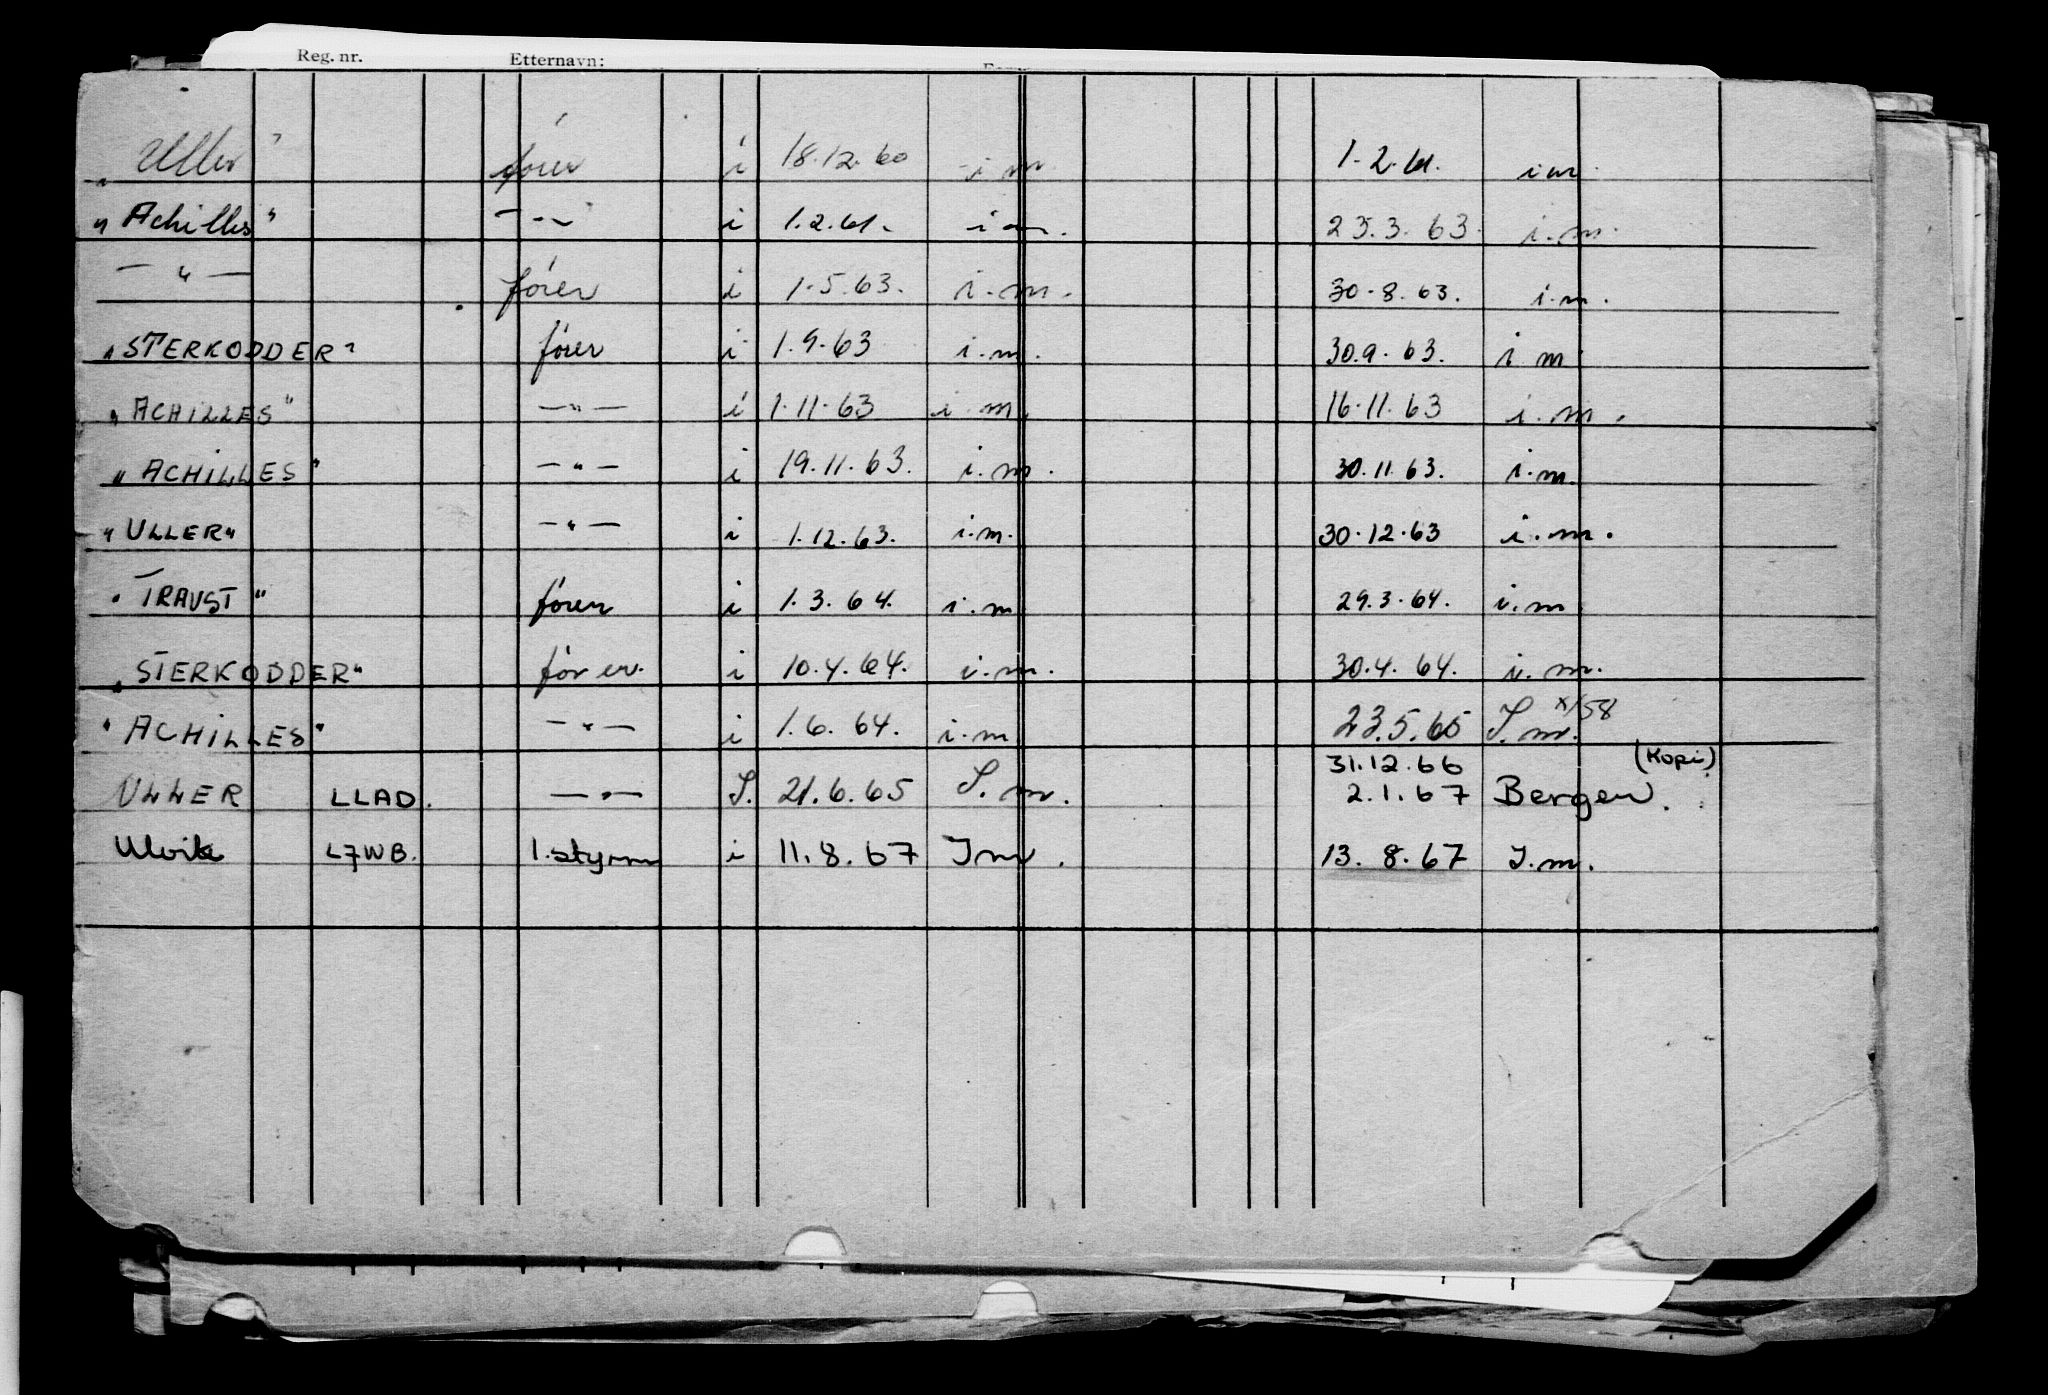 Reg. nr. Etternavn:
"Uller" fører i 18.12.60 i m 1.2.61. i m.
"Achilles" — " — i 1.2.61. i m. 23.3.63. i.m.
— " — fører i 1.5.63. i.m. 30.8.63. i.m.
"STERKODDER" fører i 1.9.63 i.m. 30.9.63. i m
"ACHILLES" — " — i 1.11.63 i.m. 16.11.63 i.m.
"ACHILLES" — " — i 19.11.63. i.m. 30.11.63. i.m.
"ULLER" — " — i 1.12.63. i.m. 30.12.63 i.m.
"TRAUST" fører i 1.3.64. i.m 29.3.64. i.m
"STERKODDER" fører. i 10.4.64. i.m. 30.4.64. i.m.
"ACHILLES" — " — i 1.6.64. i.m 23.5.65 I.m. x/58
31.12.66 (Kopi)
ULLER LLAD. — " — I. 21.6.65 I.m. 2.1.67 Bergen.
Ulvik LJWB. 1.styrm i 11.8.67 Im. 13.8.67 I.m.